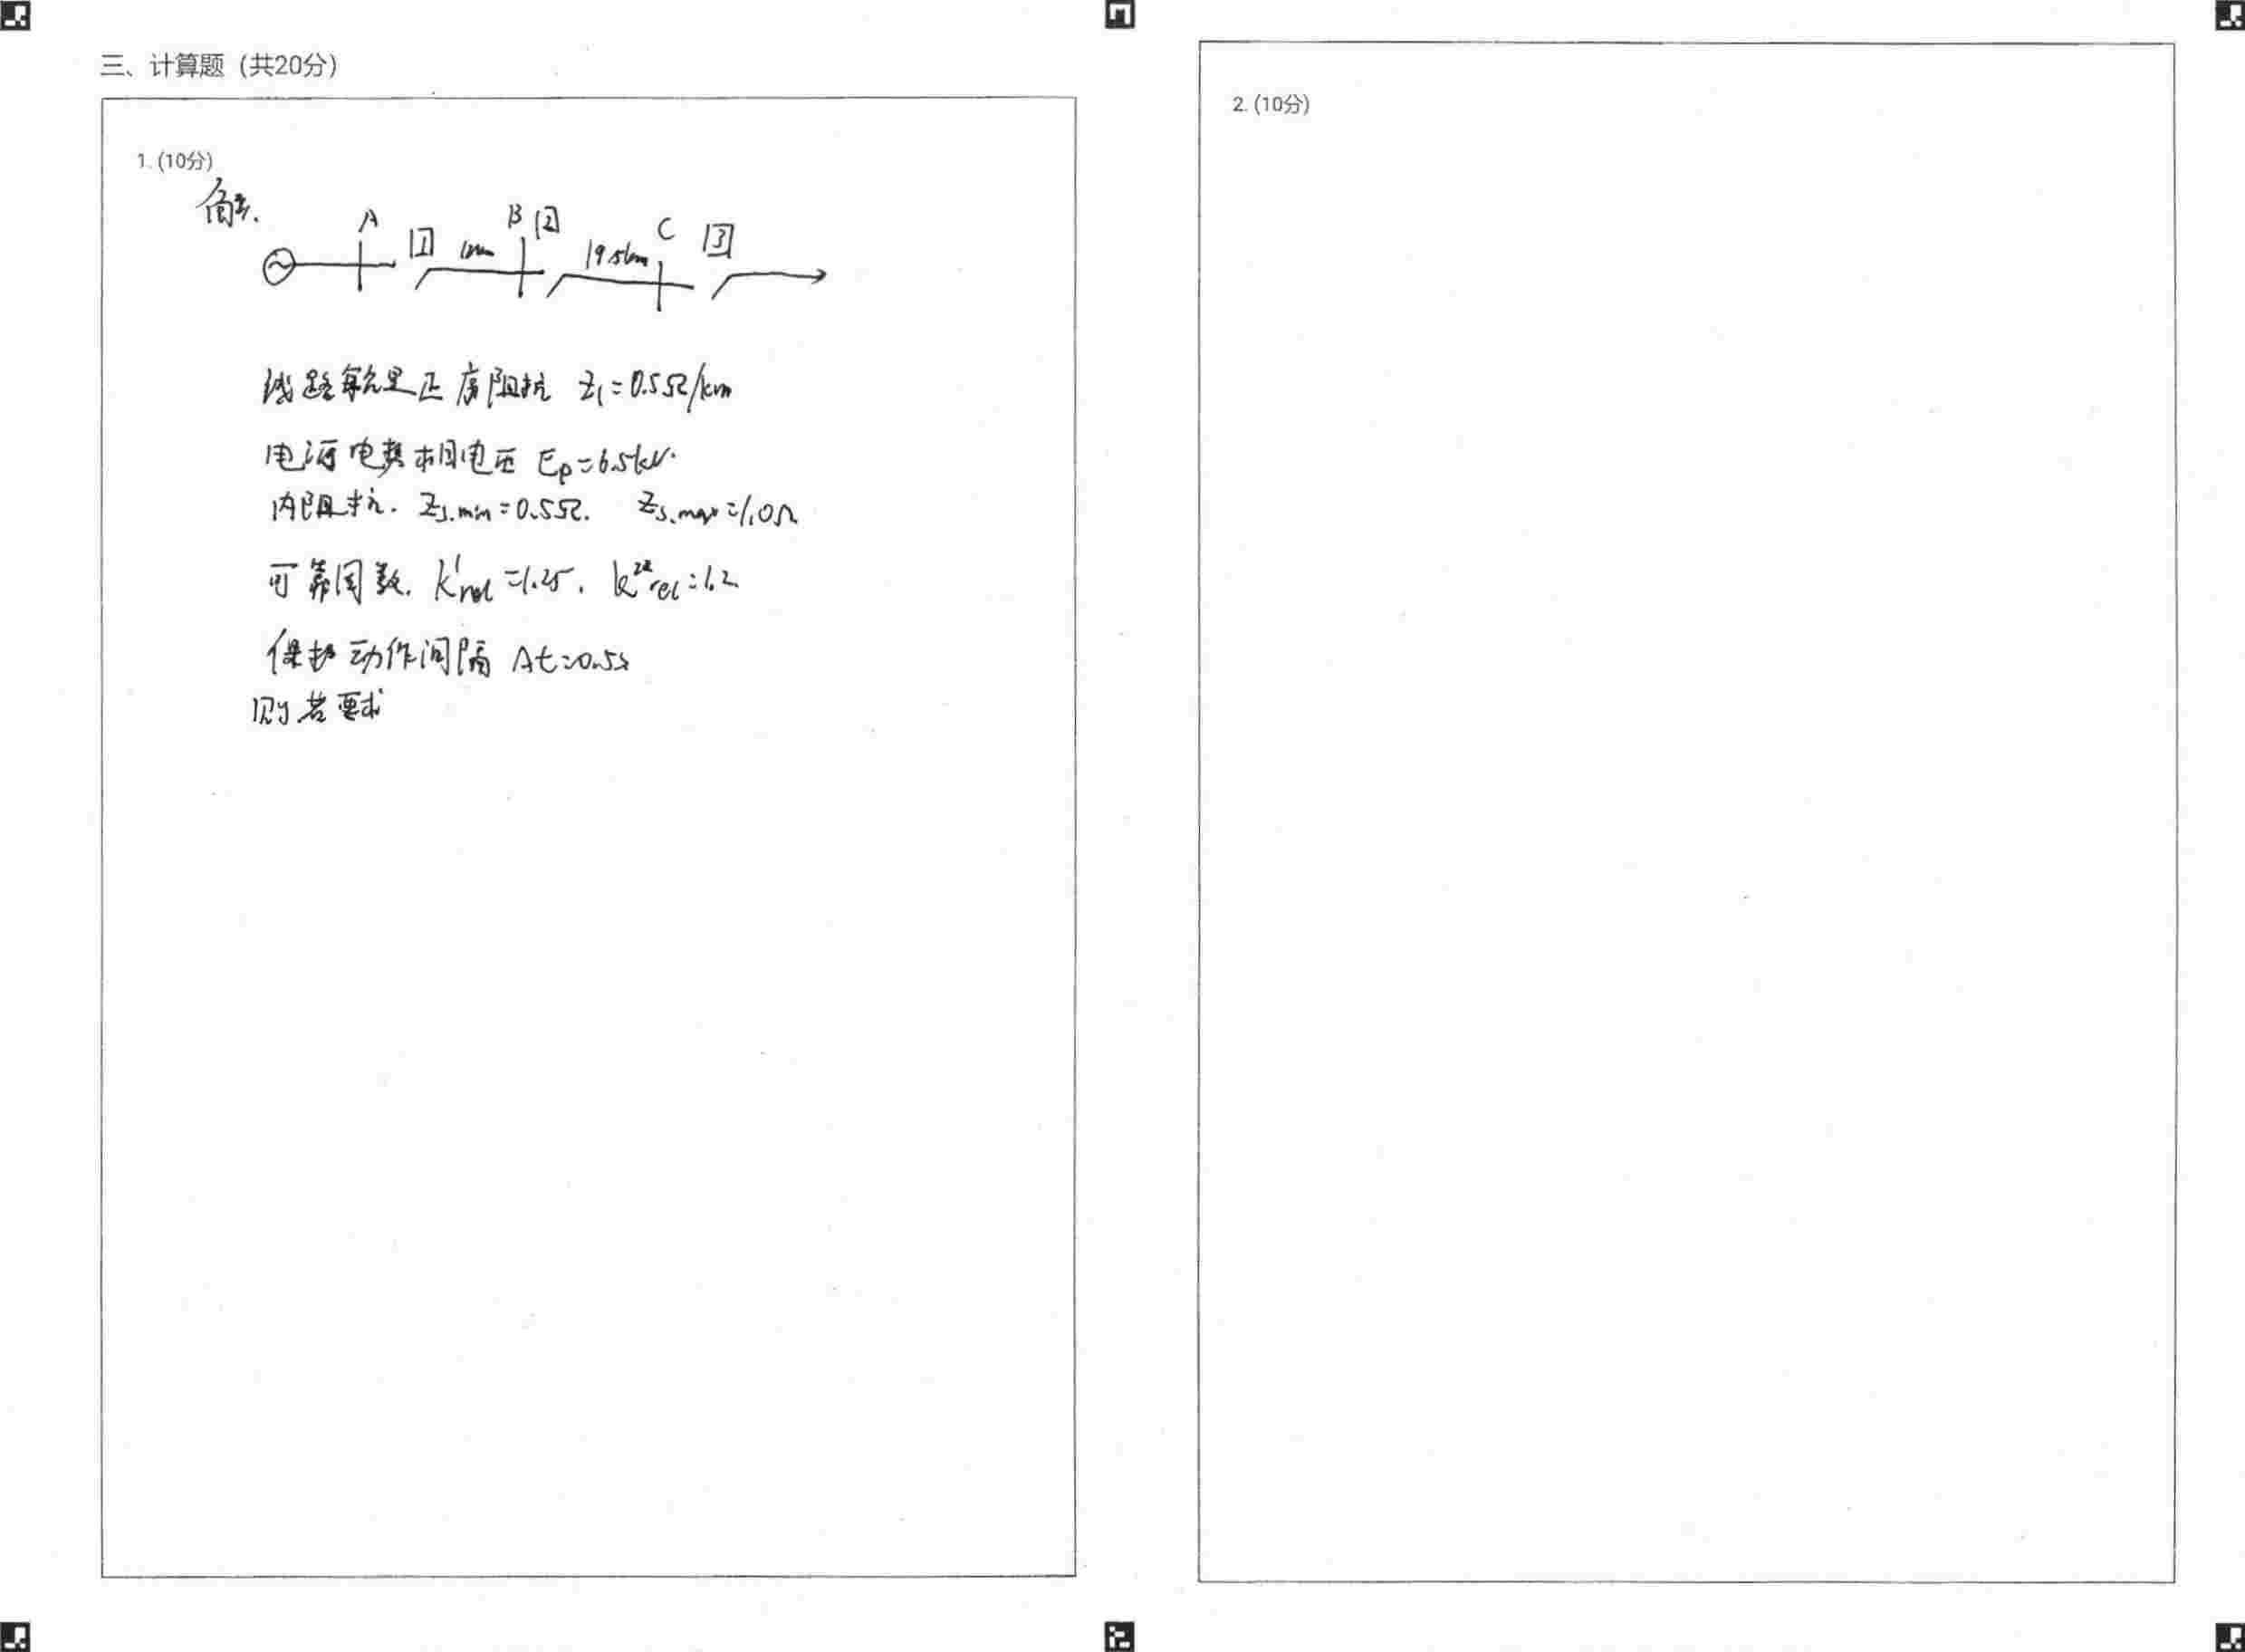 三、计算题（共20分）
1. (10分)
解.
A 1 12km B 2 19.5km C 3
线路每公里正序阻抗 Z₁=0.5Ω/km
电源电势相电压 Ep=6.5kV.
内阻抗. Zs.min=0.5Ω. Zs.max=1.0Ω
可靠因数. K'rel=1.25, rel=1.2
保护动作间隔 Δt=0.5s
则若要求
2. (10分)